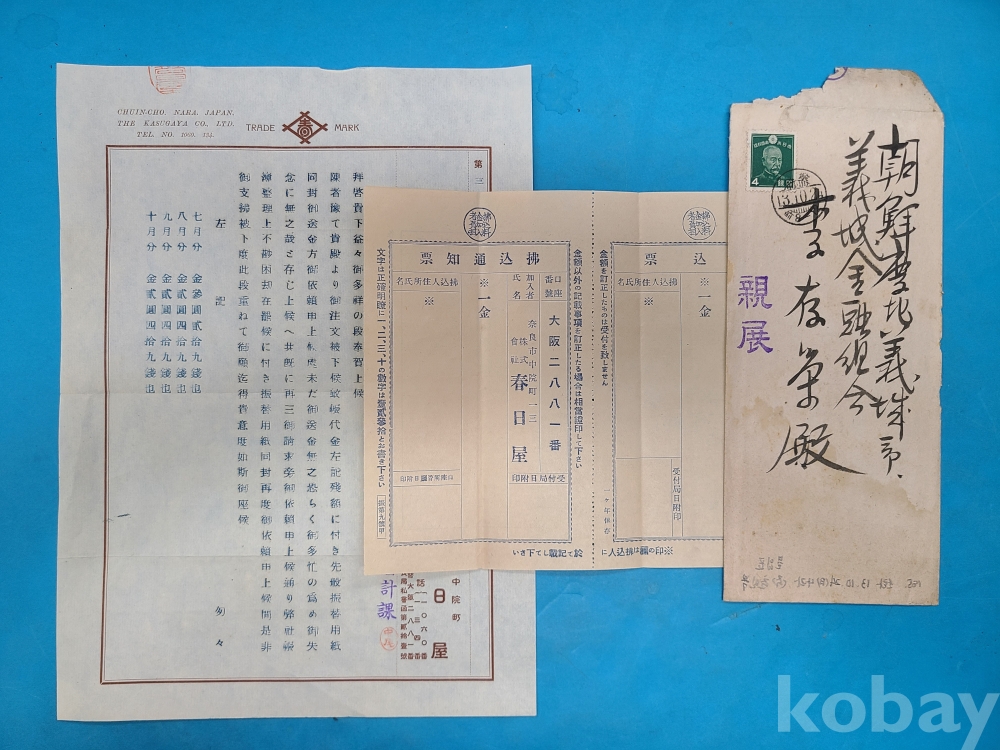 CHUIN-CHO. NARA. JAPAN.
THE KASUGAYA CO., LTD.
TEL. NO. 1060. 134.
TRADE MARK
第三
拝啓貴下益々御多祥の段奉賀上候
陳者豫て貴殿より御注文被下候蚊帳代金左記残額に付き先般振替用紙
同封御送金方御依頼申上候處未だ御送金無之恐らく御多忙の爲め御失
念に無之哉と存じ上候へ共既に再三御請求旁御依頼申上候通り弊社帳
簿整理上不尠困却在罷候に付き振替用紙同封再度御依頼申上候間是非
御支拂被下度此段重ねて御願迄得貴意度如斯御座候
匆々
左記
七月分 金參圓貳拾九錢也
八月分 金貳圓四拾九錢也
九月分 金貳圓四拾九錢也
十月分 金貳圓四拾九錢也
中院町
日屋
計課
拂込通知票
口座番號
大阪二八八一番
加入者氏名
奈良市中院町一三
株式會社 春日屋
※一金
拂込人住所氏名
※
受付局日附印
口座所管廳日附印
金額以外の記載事項を訂正したる場合は相當證印して下さい
文字は正確明瞭に一、二、三、十の數字は壹貳參拾とお書き下さい
込票
※一金
拂込人住所氏名
※
受付局日附印
金額を訂正したものは受付を致しません
※印の欄は拂込人に
於て記載して下さい
4
朝鮮慶北義城郡、
義城金融組合
李存
殿
親展
kobay